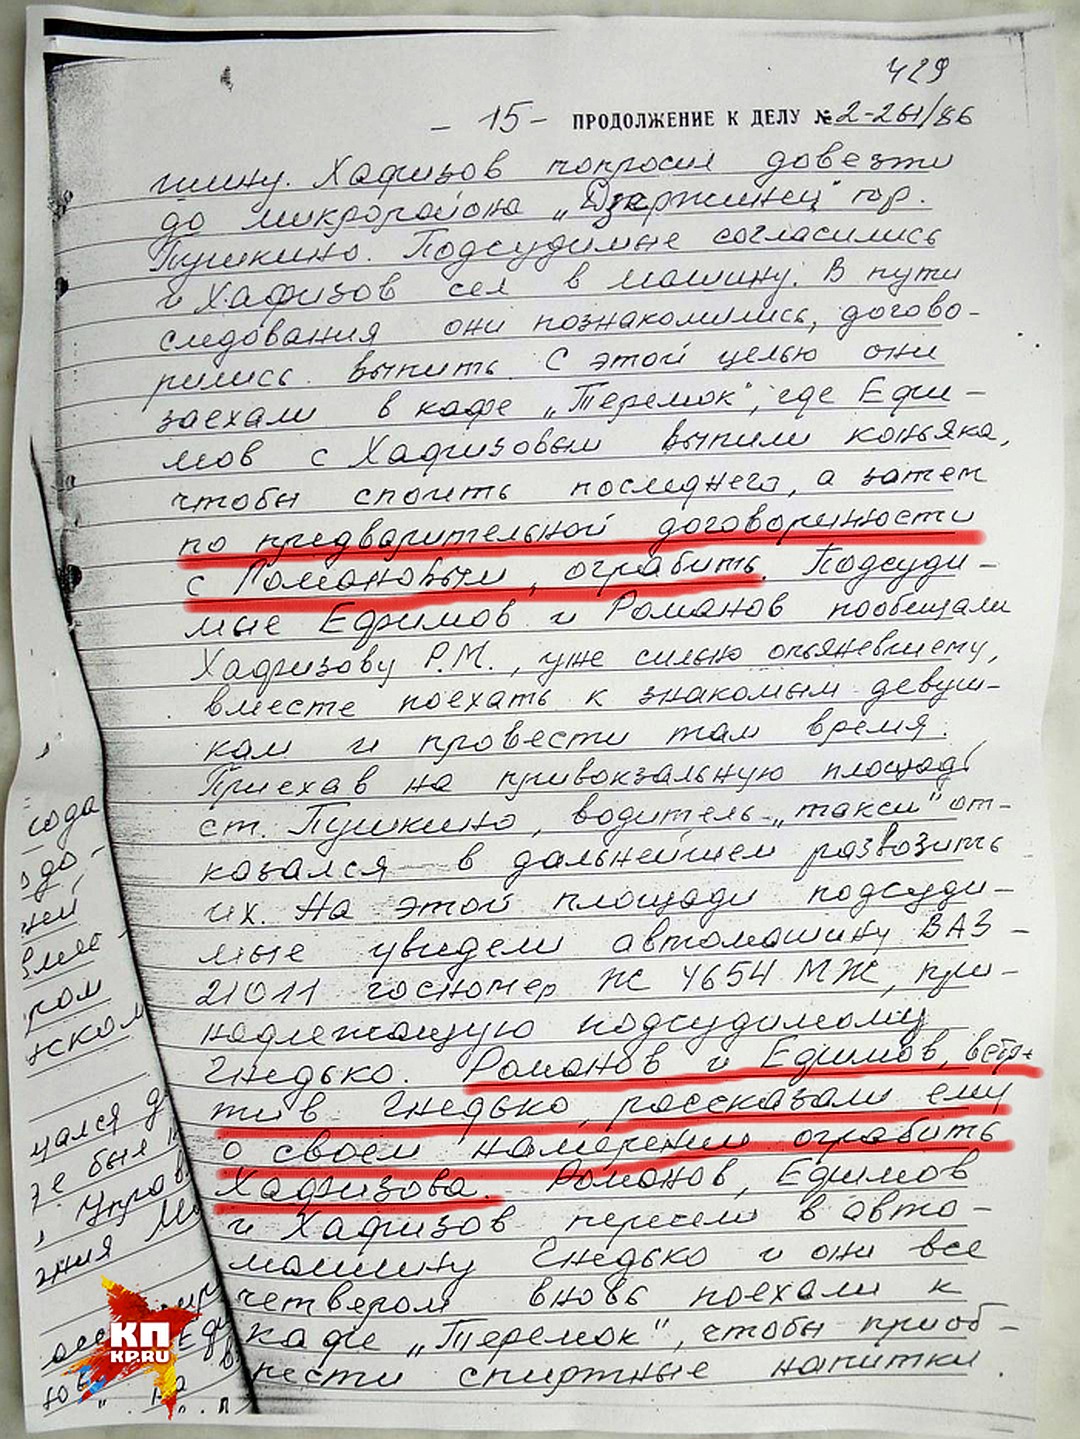 429
- 15 - ПРОДОЛЖЕНИЕ К ДЕЛУ № 2-261/86
шину. Хафизов попросил довезти
до микрорайона „Дзержинец" гор.
Пушкино. Подсудимые согласились
и Хафизов сел в машину. В пути
следования они познакомились, догово-
рились выпить. С этой целью они
заехали в кафе „Теремок", где Ефи-
мов с Хафизовым выпили коньяка,
чтобы споить последнего, а затем
по предварительной договоренности
с Романовым, ограбить. Подсуди-
мые Ефимов и Романов пообещали
Хафизову Р.М., уже сильно опьяневшему,
вместе поехать к знакомым девуш-
кам и провести там время.
Приехав на привокзальную площадь
ст. Пушкино, водитель „такси" от-
казался в дальнейшем развозить
их. На этой площади подсуди-
мые увидели автомашину ВАЗ -
21011 госномер Ж 4654 МЖ, при-
надлежащую подсудимому
Гнедько. Романов и Ефимов, встре-
тив Гнедько, рассказали ему
о своем намерении ограбить
Хафизова. Романов, Ефимов
и Хафизов пересели в авто-
машину Гнедько и они все
четвером вновь поехали к
кафе „Теремок", чтобы приоб-
рести спиртные напитки.
года
до-
ней
вме
ром
нском
чался д
е был
Управ
ния Мо
КП
KP.RU